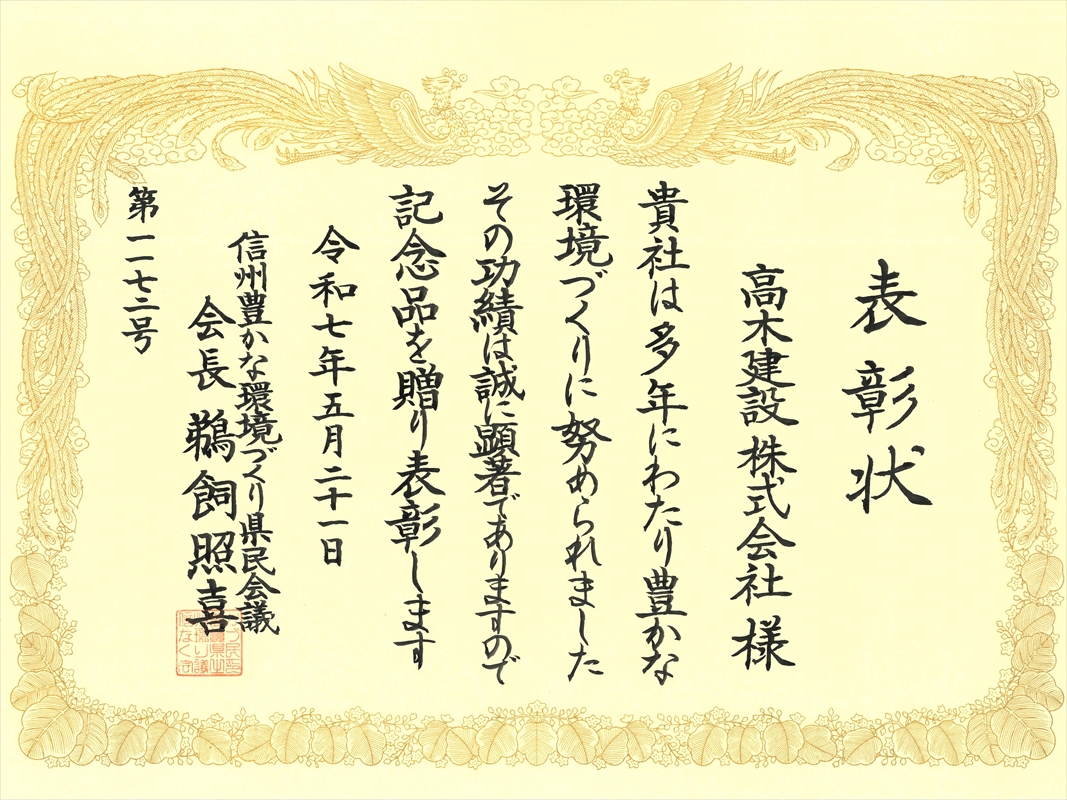 表彰状
高木建設株式会社 様
貴社は多年にわたり豊かな
環境づくりに努められました
その功績は誠に顕著でありますので
記念品を贈り表彰します
令和七年五月二十一日
信州豊かな環境づくり県民会議
会長 鵜飼照喜
第一一七二号